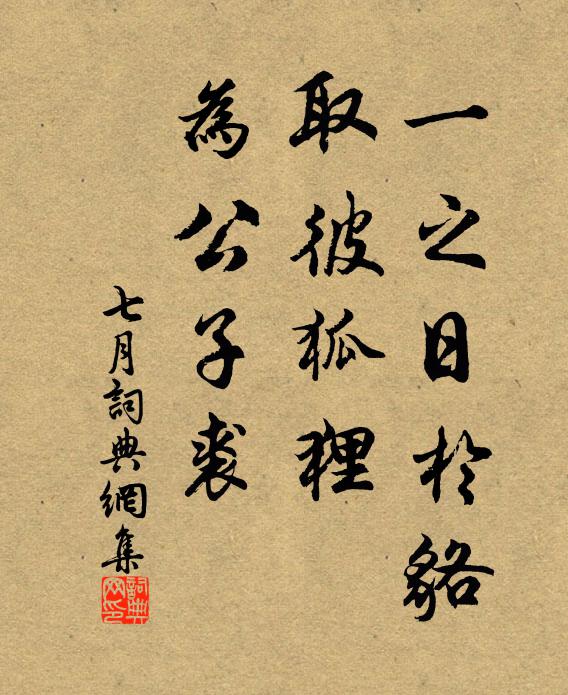 一之日於貉
取彼狐狸
為公子裘
七月詞典網集
詞典
网印